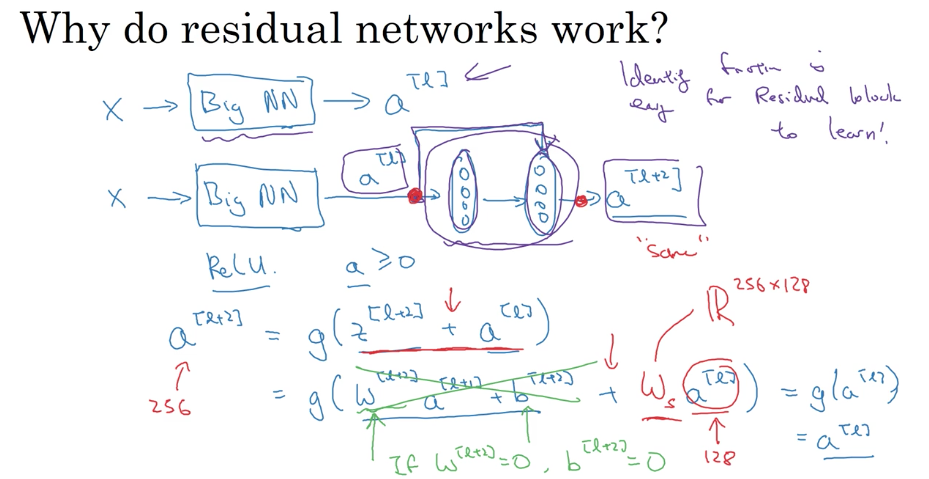 Why do residual networks work?
X → Big NN → a^[l]
Identity function is
easy for Residual block
to learn!
X → Big NN → a^[l] → → → a^[l+2]
"same"
ReLU. a ≥ 0
ℝ^256×128
a^[l+2] = g(z^[l+2] + a^[l])
256
= g(W^[l+2] a^[l+1] + b^[l+2] + W_s a^[l]) = g(a^[l])
= a^[l]
If W^[l+2]=0, b^[l+2]=0
128